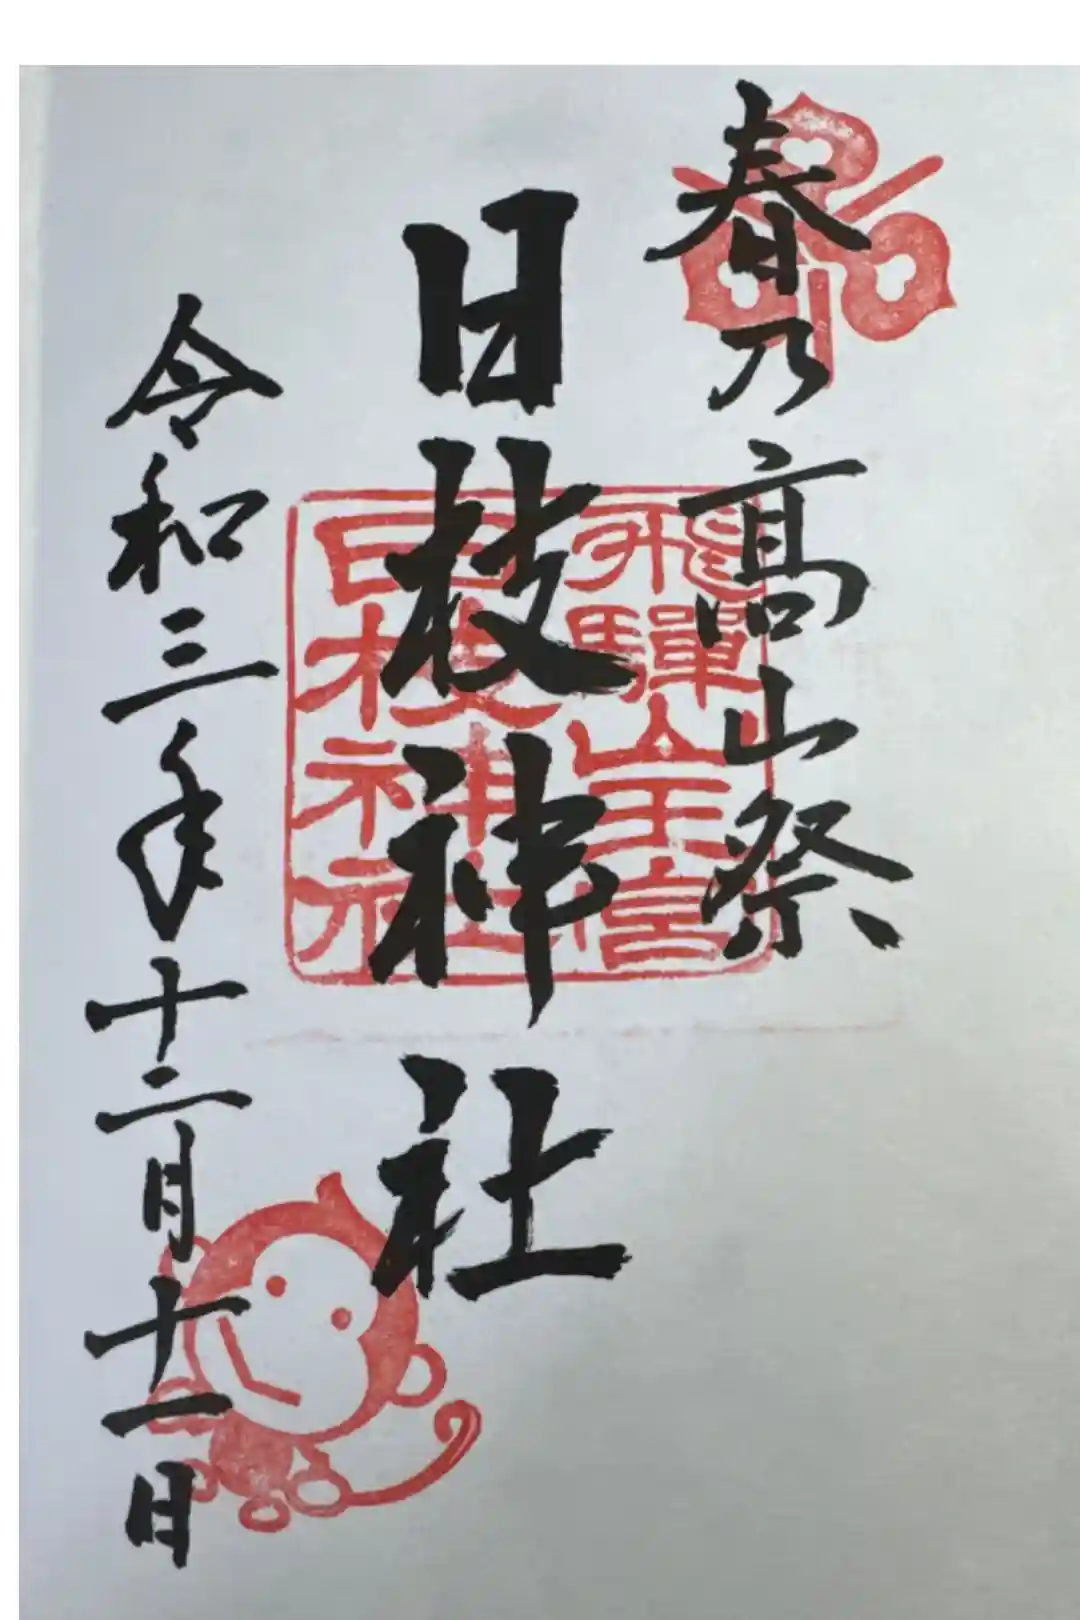 春乃髙山祭
飛驒山王宮
日枝神社
日枝神社
令和三年十二月十一日